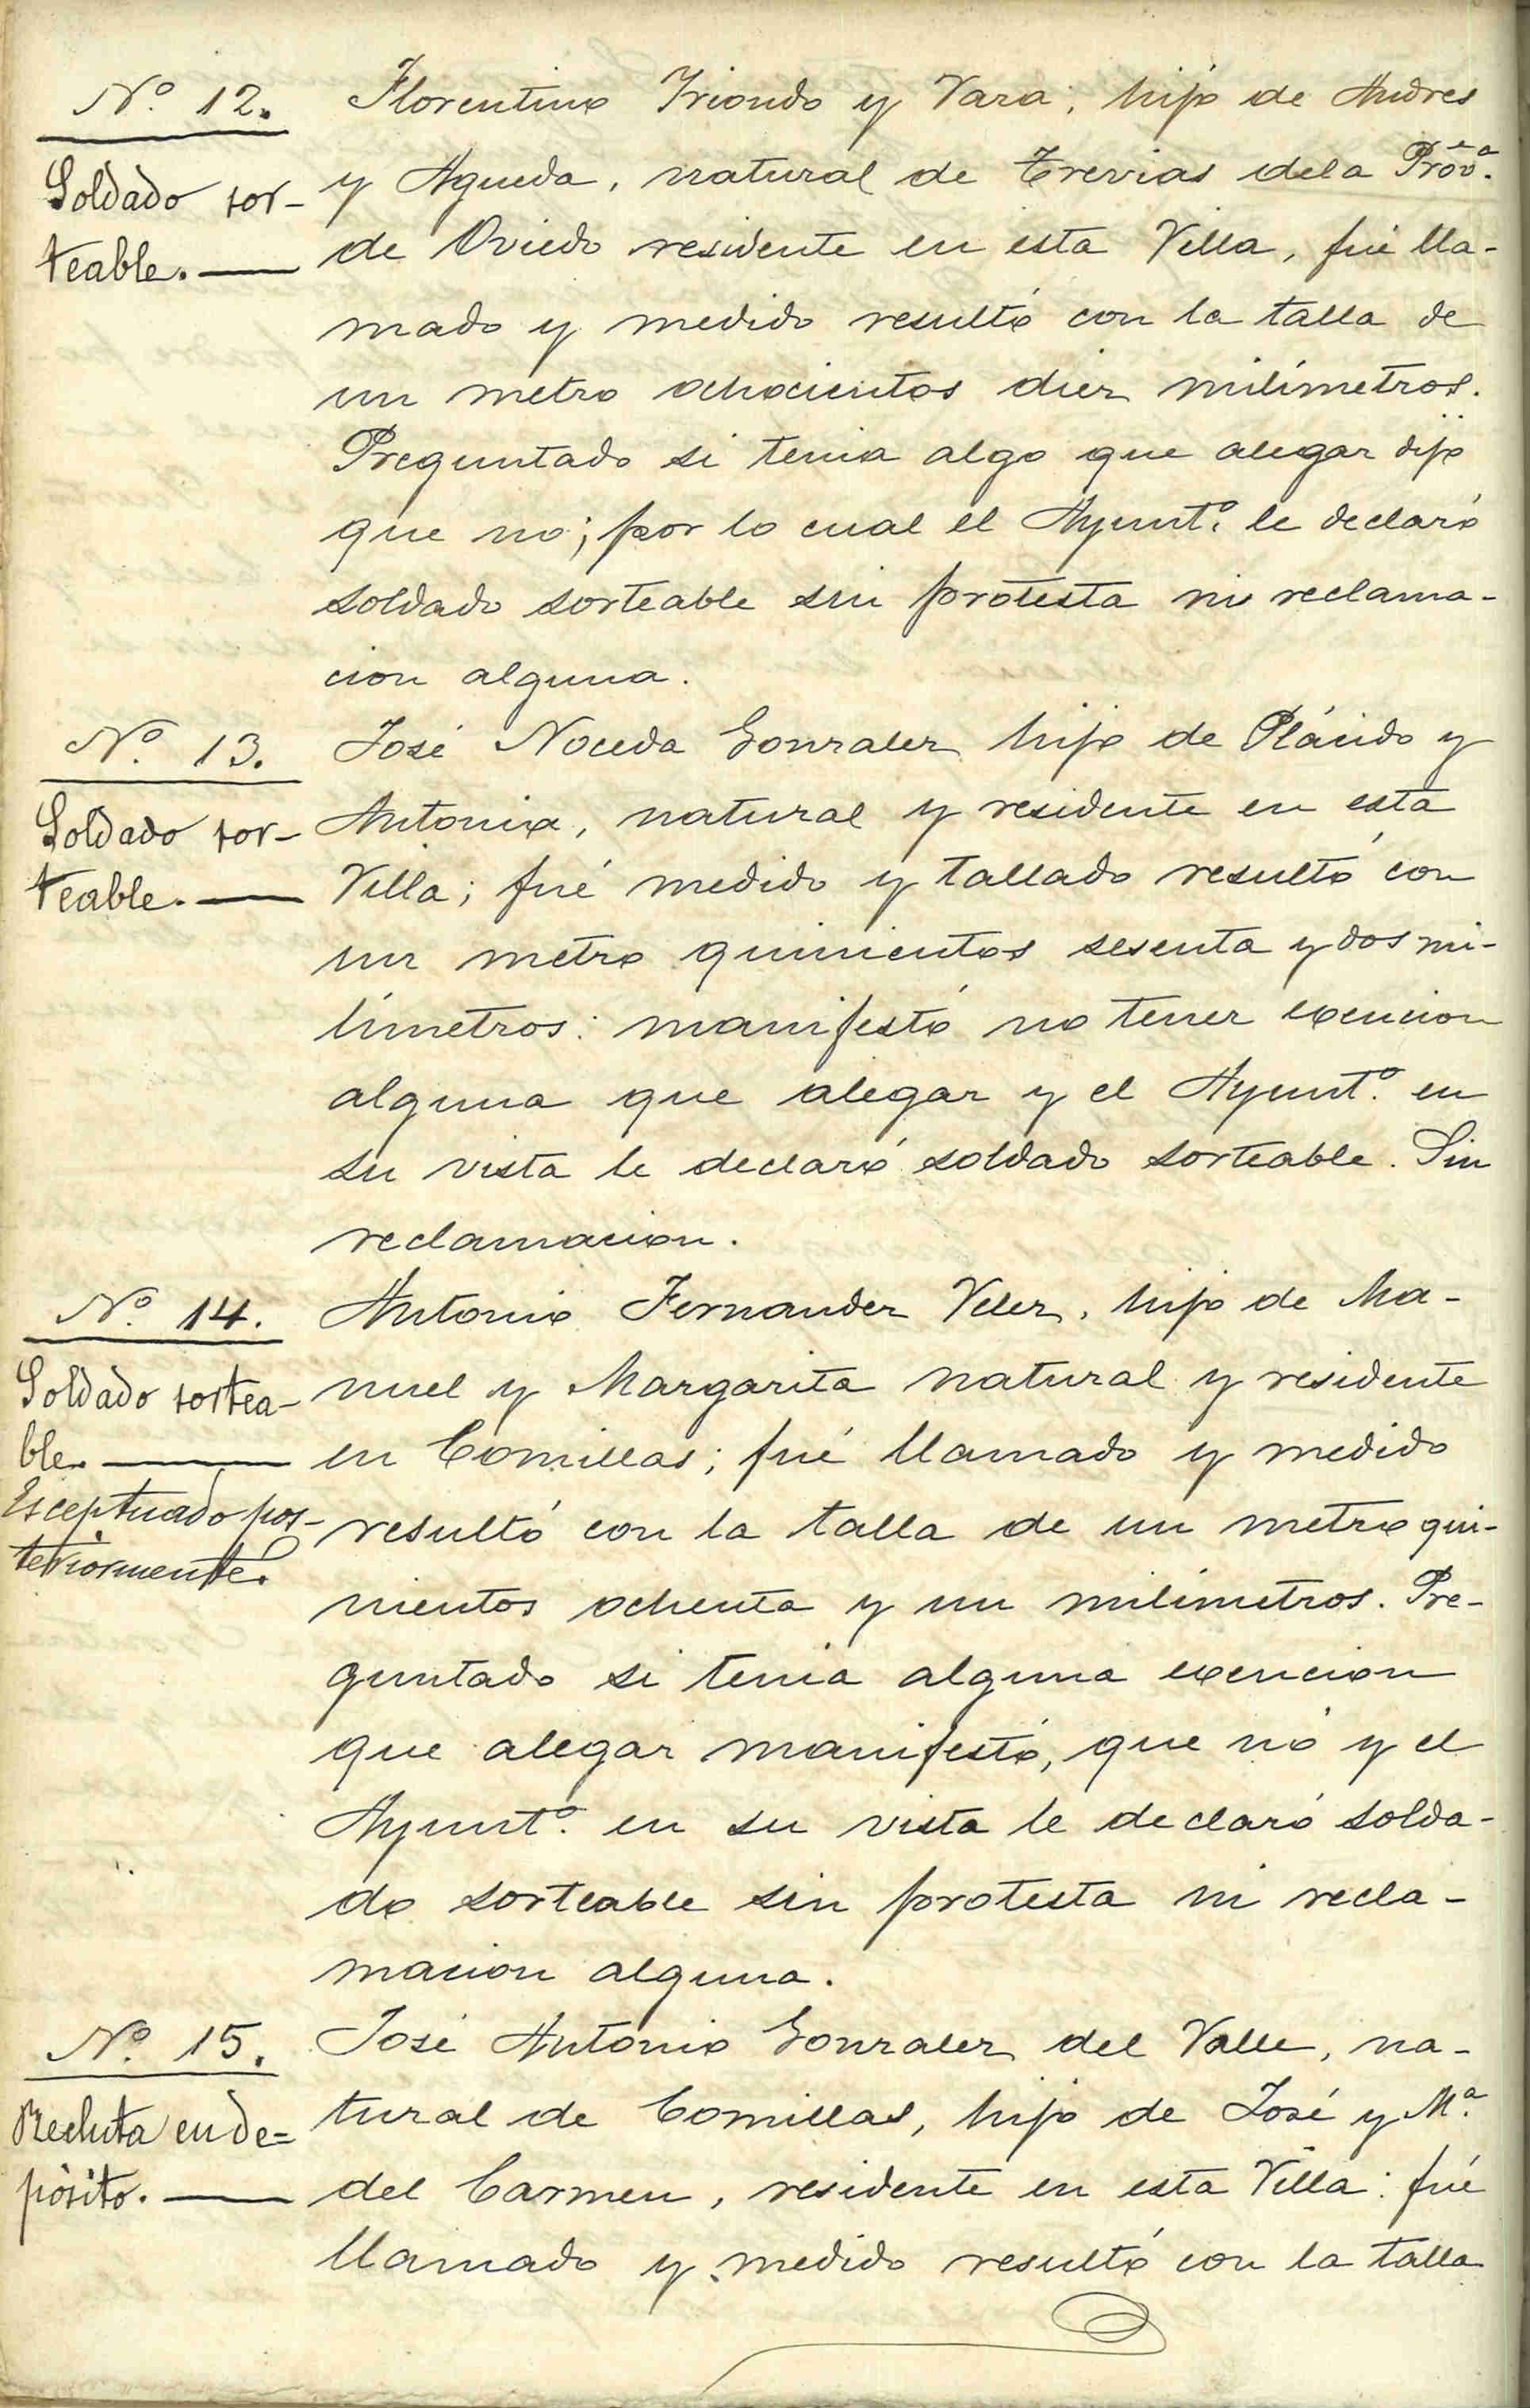 Nº 12.
Soldado sor-
teable.
Florentino Iriondo y Vara, hijo de Andres
y Agueda, natural de Trevias dela Provª.
de Oviedo residente en esta Villa, fué lla-
mado y medido resultó con la talla de
un metro ochocientos diez milímetros.
Preguntado si tenia algo que alegar dijo
que no; por lo cual el Ayuntº. le declaró
soldado sorteable sin protesta ni reclama-
cion alguna.
Nº 13.
Soldado sor-
teable.
José Noceda Gonzalez hijo de Plácido y
Antonia, natural y residente en esta
Villa; fué medido y tallado resultó con
un metro quinientos sesenta y dos mi-
límetros: manifestó no tener exencion
alguna que alegar y el Ayuntº. en
su vista le declaró soldado sorteable. Sin
reclamacion.
Nº 14.
Soldado sortea-
ble.
Esceptuado pos-
teriormente.
Antonio Fernandez Velez, hijo de Ma-
nuel y Margarita natural y residente
en Comillas; fué llamado y medido
resultó con la talla de un metro qui-
nientos ochenta y un milímetros. Pre-
guntado si tenia alguna exencion
que alegar manifestó, que nó y el
Ayuntº. en su vista le declaró solda-
do sorteable sin protesta ni recla-
macion alguna.
Nº 15.
Recluta en de=
pósito.
José Antonio Gonzalez del Valle, na-
tural de Comillas, hijo de José y Mª.
del Carmen, residente en esta Villa: fué
llamado y medido resultó con la talla